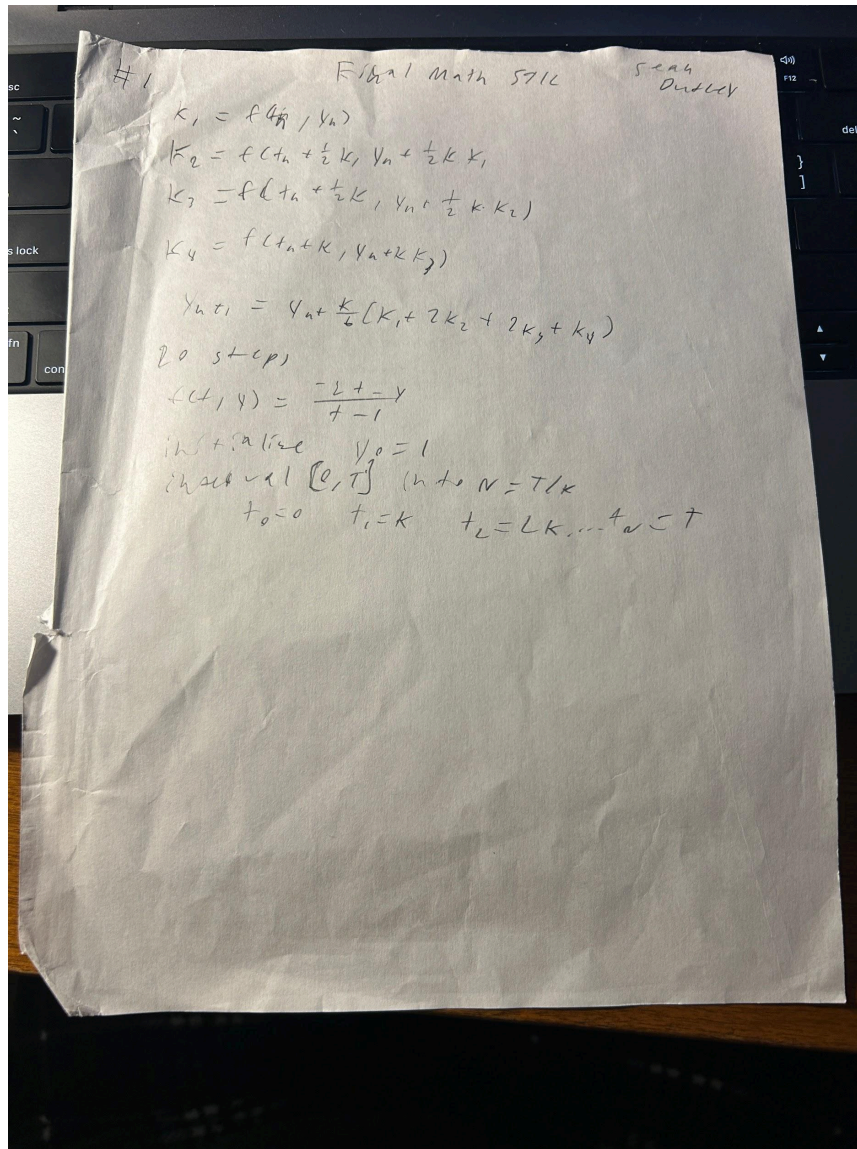 #1 Final Math 571L Sean
K₁ = f(tₙ, yₙ)
K₂ = f(tₙ + ½ k, yₙ + ½ k K₁
K₃ = f(tₙ + ½ k, yₙ + ½ k · K₂)
K₄ = f(tₙ + k, yₙ + k K₃)
yₙ₊₁ = yₙ + k/6 (K₁ + 2K₂ + 2K₃ + K₄)
20 steps
f(t, y) = (-2t - y)/(t - 1)
initialize y₀ = 1
interval [0, T] into N = T/k
t₀ = 0 t₁ = k t₂ = 2k, ... t_N = T
sc
~
`
s lock
fn
con
F12
del
}
]